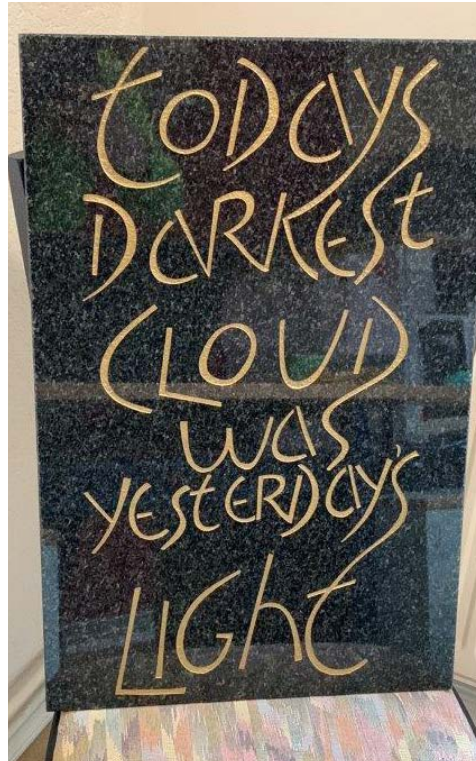 toDAYS
DARKESt
CLOUD
WAS
YEStERDAY'S
LIGht